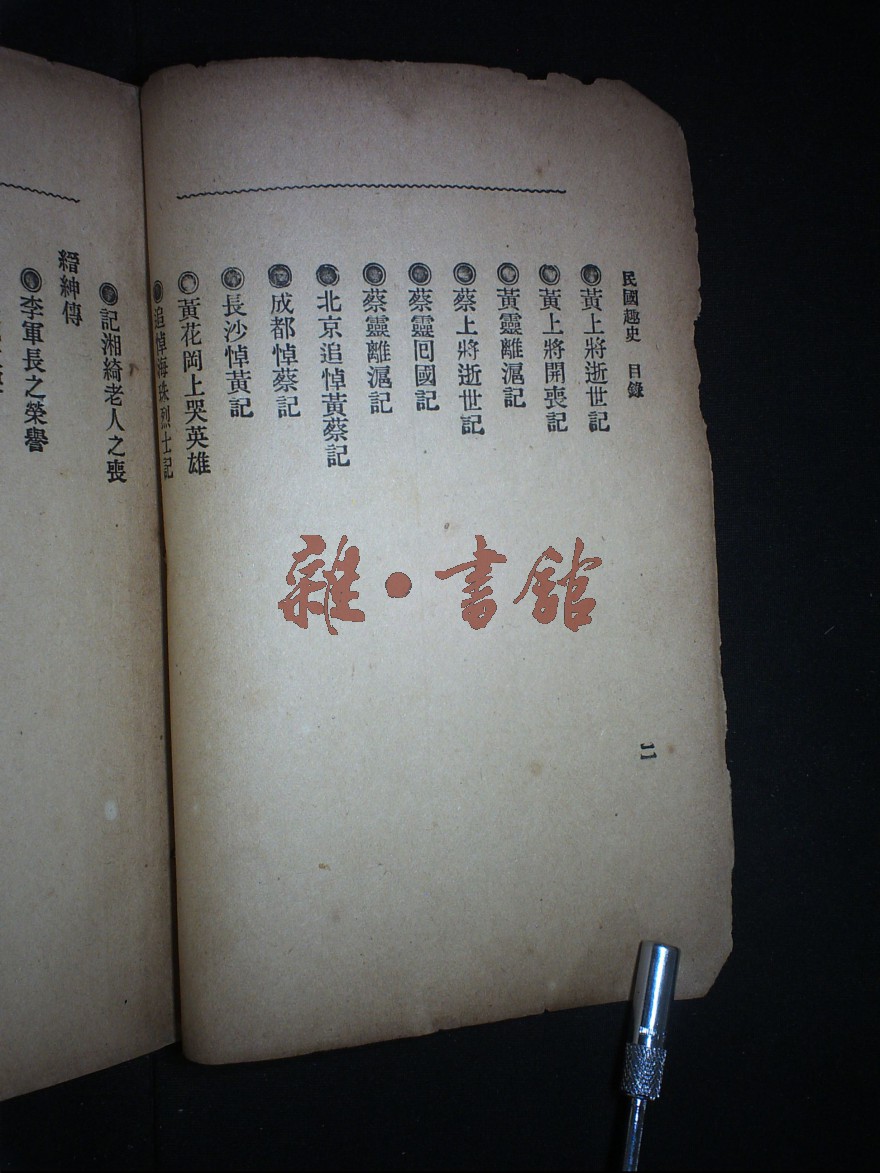 民國趣史 目錄
黃上將逝世記
黃上將開喪記
黃靈離滬記
蔡上將逝世記
蔡靈囘國記
蔡靈離滬記
北京追悼黃蔡記
成都悼蔡記
長沙悼黃記
黃花岡上哭英雄
追悼海珠烈士記
二
記湘綺老人之喪
縉紳傳
李軍長之榮譽
雜·書館